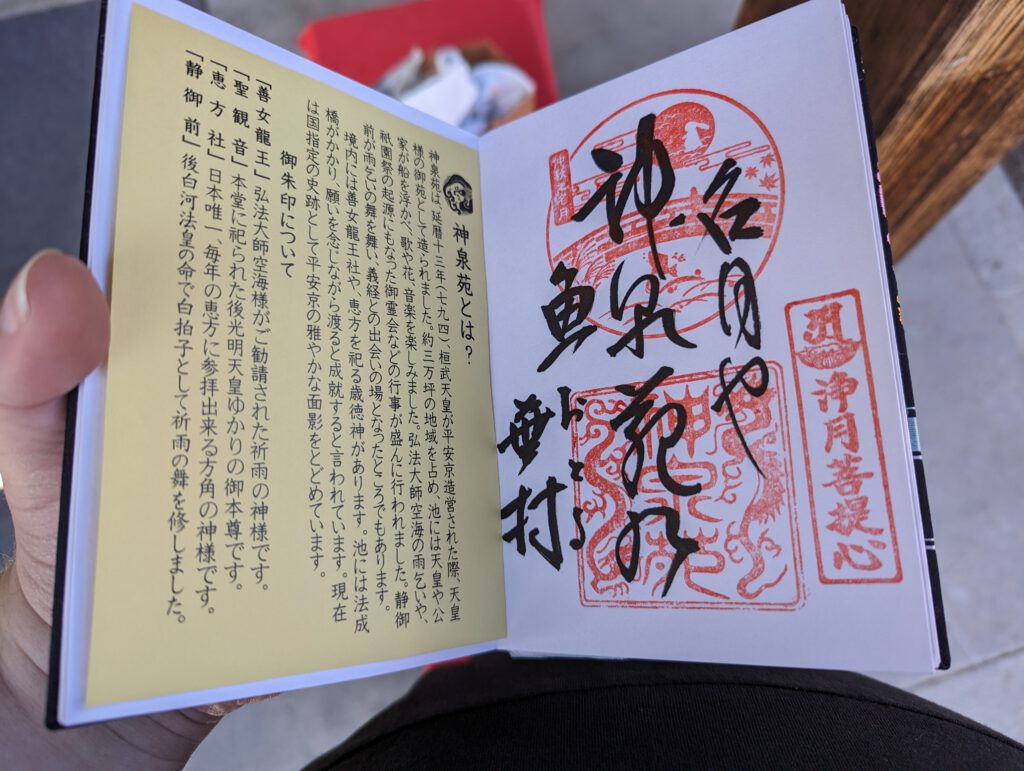 浄月菩提心
名月や
神泉苑の
魚
蕪村
神泉苑とは?
神泉苑は、延暦十三年(七九四)、桓武天皇が平安京造営された際、天皇
様の御苑として造られました。約三万坪の地域を占め、池には天皇や公
家が船を浮かべ、歌や花、音楽を楽しみました。弘法大師空海の雨乞いや、
祇園祭の起源にもなった御霊会などの行事が盛んに行われました。静御
前が雨乞いの舞を舞い、義経との出会いの場となったところでもあります。
境内には善女龍王社や、恵方を祀る歳徳神があります。池には法成
橋がかかり、願いを念じながら渡ると成就すると言われています。現在
は国指定の史跡として平安京の雅やかな面影をとどめています。
御朱印について
「善女龍王」弘法大師空海様がご勧請された祈雨の神様です。
「聖観音」本堂に祀られた後光明天皇ゆかりの御本尊です。
「恵方社」日本唯一、毎年の恵方に参拝出来る方角の神様です。
「静御前」後白河法皇の命で白拍子として祈雨の舞を修しました。